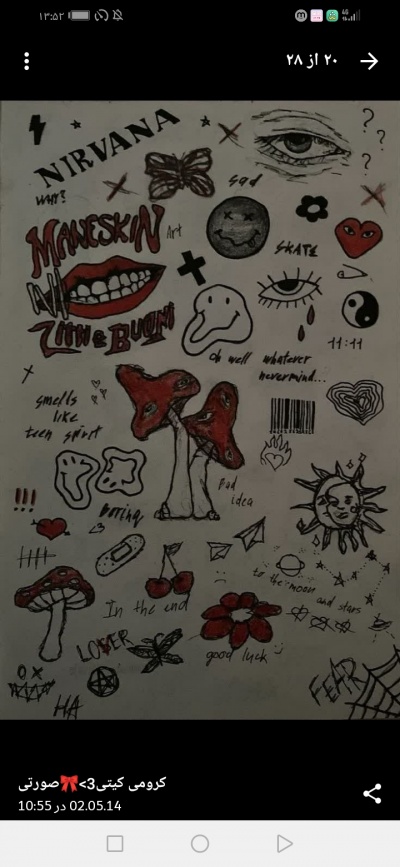 ۱۳:۵۲
4G
۲۰ از ۲۸
NIRVANA
? ? ?
WHY?
sad
MANESKIN
Art
SKATE
ZITTI E BUONI
11:11
oh well whatever
nevermind...
smells
like
teen spirit
Bad
idea
!!!
boring
<3
to the moon
and stars
In the end
LOVER
good luck :)
OX
FEAR
HA
کرومی کیتی3>🎀صورتی
02.05.14 در 10:55